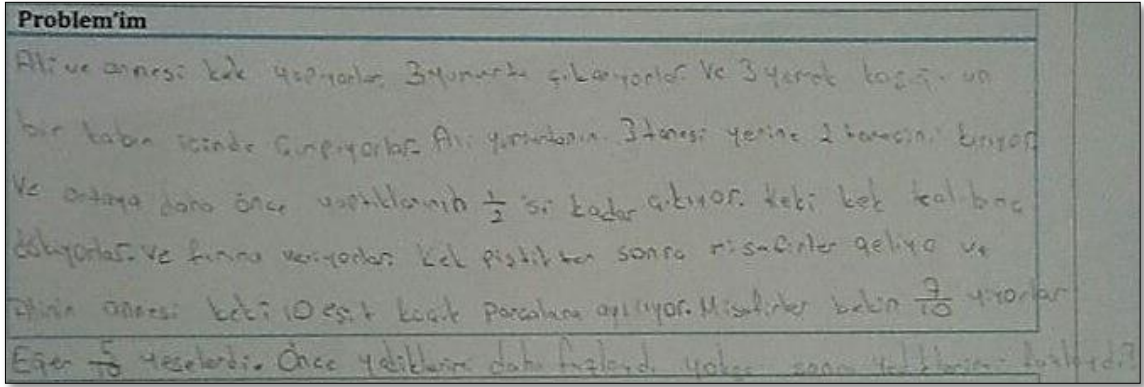 Problem'im
Ali ve annesi kek yapıyorlar. 3 yumurta çıkarıyorlar ve 3 yemek kaşığı un
bir kabın içinde çırpıyorlar. Ali yumurtanın 3 tanesi yerine 2 tanesini kırıyor
ve ortaya daha önce yaptıklarının 1/2 'si kadar çıkıyor. Keki kek kalıbına
döküyorlar ve fırına veriyorlar. Kek piştikten sonra misafirler geliyo ve
Alinin annesi keki 10 eşit küçük parçalara ayılıyor. Misafirler kekin 9/10 yiyorlar
Eğer 5/10 yeselerdi. Önce yedikleri daha fazlaydı yoksa sonra yedikleri fazlaydı?